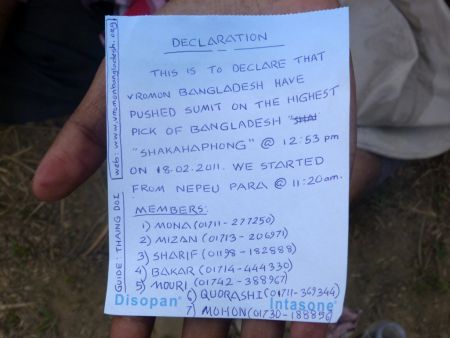 DECLARATION
THIS IS TO DECLARE THAT
VROMON BANGLADESH HAVE
PUSHED SUMIT ON THE HIGHEST
PICK OF BANGLADESH "SHAI
"SHAKAHAPHONG" @ 12:53 pm
ON 18.02.2011. WE STARTED
FROM NEPEU PARA @ 11:20am.
MEMBERS:
1) MONA (01711-277250)
2) MIZAN (01713-206971)
3) SHARIF (01198-182888)
4) BAKAR (01714-444330)
5) MOURI (01742-388967)
6) QUORASHI (01711-369344)
7) MOHON (01730-188896)
web: www.vromonbangladesh.org
GUIDE: THAING DOI
Disopan®
Intasone®